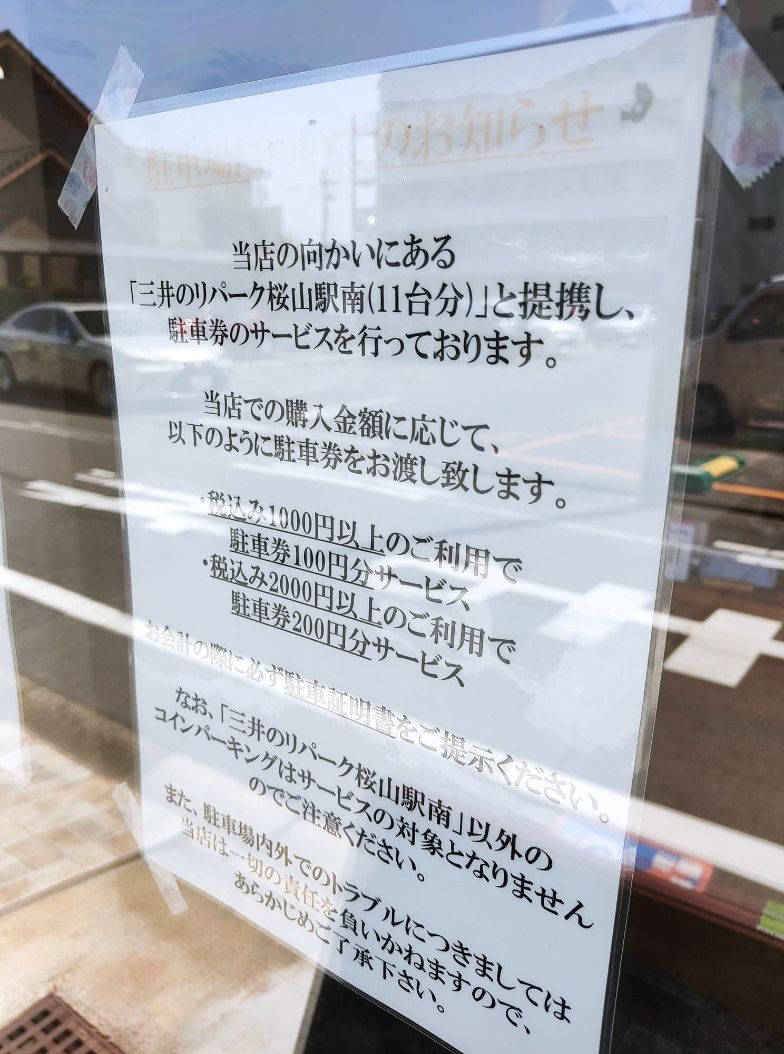 駐車場についてのお知らせ
当店の向かいにある
「三井のリパーク桜山駅南(11台分)」と提携し、
駐車券のサービスを行っております。
当店での購入金額に応じて、
以下のように駐車券をお渡し致します。
・税込み1000円以上のご利用で
駐車券100円分サービス
・税込み2000円以上のご利用で
駐車券200円分サービス
お会計の際に必ず駐車証明書をご提示ください。
なお、「三井のリパーク桜山駅南」以外の
コインパーキングはサービスの対象となりません
のでご注意ください。
また、駐車場内外でのトラブルにつきましては
当店は一切の責任を負いかねますので、
あらかじめご了承下さい。